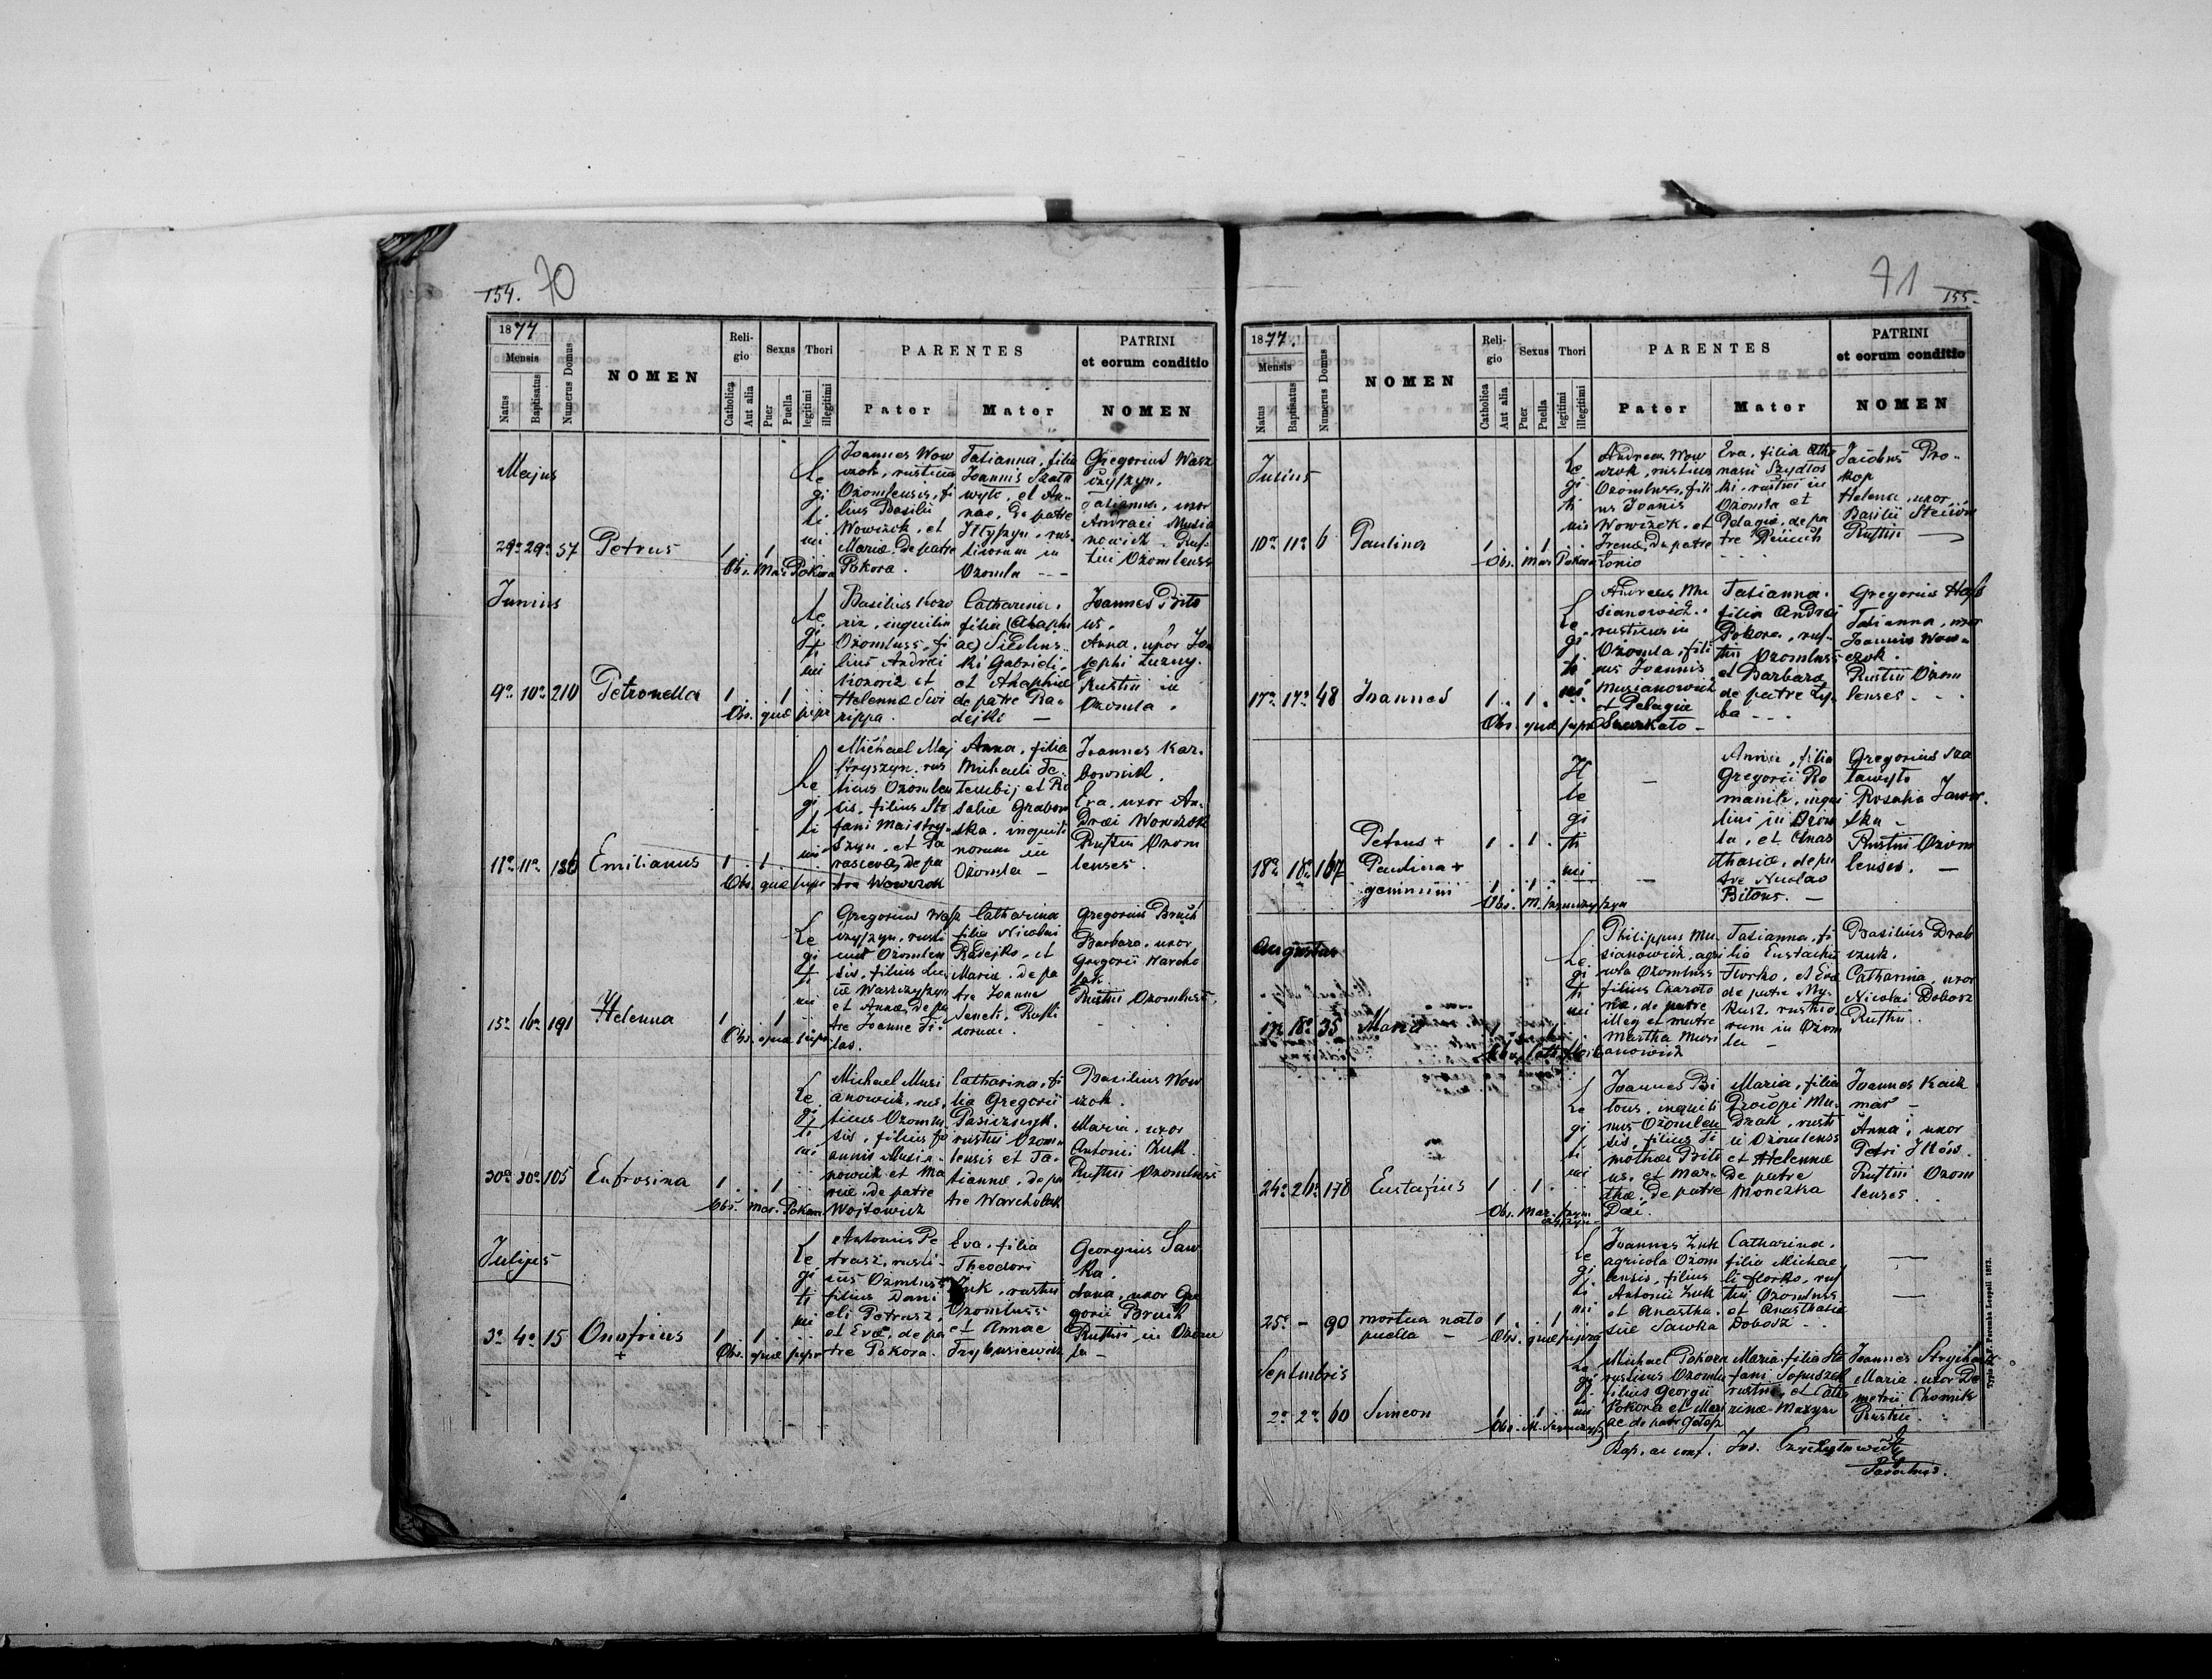 154. 70
1877
Mensis
Natus
Baptisatus
Numerus Domus
NOMEN
Reli-
gio
Catholica
Aut alia
Sexus
Puer
Puella
Thori
legitimi
illegitimi
PARENTES
Pater
Mater
PATRINI
et eorum conditio
NOMEN
Majus
29a 29a 57 Petrus
1 1
Obs. Mar. Pokora
Le
gi
ti
mi
Joannes Wow
czok, rusticus
Ozomlensis, fi
lius Basilii
Wowczok, et
Mariae, de patre
Pokora.
Tatianna, filia
Joannis Szata
wyto, et An-
nae, de patre
rus-
ticorum in
Ozomla - -
Gregorius Wasz
czyszyn.
Tatianna, uxor
Andraei Musia
nowicz. Rus-
tici Ozomlenses
Junius
9a 10a 210 Petronella
1 1
Obs. quae supr
Le
gi
ti
mi
Basilius Koro
riz, inquilin
Ozomlens, fi
lius Andraei
et
Helennae Swi
rippa.
Catharina,
filia (Ahaphi
ae)
ki Gabrieli,
et Ahaphiae
de patre Ra-
dejko -
Joannes Bito
us.
Anna, uxor Jo
sephi Luzny.
Rustici in
Ozomla.
11a 11a 136 Emilianus
1 1
Obs. quae supr
Le
gi
ti
mi
Michael Maj
stryszyn, rus
ticus Ozomlen
sis, filius Ste
fani Maistry-
szyn, et Pa
rascevae, de pa
tre Wowczok
Anna, filia
Michaeli Te-
et Ro
saliae Grabow
ska, inquili
norum in
Ozomla -
Joannes Kar-
bownik.
Eva, uxor An-
draei Wowczok
Rustici Ozom
lenses.
15a 16a 191 Helenna
1 1
Obs. quae supr
Le
gi
ti
mi
Gregorius Wasz
czyszyn, rusti
cus Ozomlen
sis, filius Lu
cae Waszczyszyn
et Annae, de pa
tre Joanne Fi-
las.
Catharina
filia Nicolai
Radejko, et
Mariae, de pa
tre Joanne
Senets. Rusti
corum.
Gregorius Bruch
Barbara, uxor
Gregorii Warcho
lak.
Rustici Ozomlenses.
30a 30a 105 Eufrosina
1 1
Obs. Mar. Pokora
Le
gi
ti
mi
Michael Musi
anowicz, rus
ticus Ozomlen
sis, filius Jo
annis Musia-
nowicz et Ma
riae, de patre
Wojtowicz
Catharina, fi
lia Gregorii
Pasicznyk.
rustici Ozom-
lensis et Ta-
tiannae, de pa
tre Warcholak
Basilius Wow
czok.
Maria, uxor
Antonii Zuk
Rustici Ozomlenses
Julius
3a 4a 15 Onufrius
+
1 1
Obs. quae supr
Le
gi
ti
mi
Antonius Pe
trasz, rusti-
cus Ozomlensis
filius Dani
eli Petrasz,
et Evae, de pa
tre Pokora.
Eva, filia
Theodori
Zuk, rustici
Ozomlens
et Annae
Trybusiewicz
Georgius Saw
ka.
Anna, uxor Gre
gorii Bruch
Rustici in Ozom
la -
71 155.
1877.
Mensis
Natus
Baptisatus
Numerus Domus
NOMEN
Reli-
gio
Catholica
Aut alia
Sexus
Puer
Puella
Thori
legitimi
illegitimi
PARENTES
Pater
Mater
PATRINI
et eorum conditio
NOMEN
Julius
10a 11a 6 Paulina
1 1
Obs. Mar. Pokora
Le
gi
ti
mi
Andreas Wow
czok, rusticus
Ozomlensis, fili
us Joannis
Wowczok, et
Irenae, de patre
Lonio
Eva, filia Atha
nasii Szydlos
ki, rustici in
Ozomla et
Pelagiae, de pa
tre
Jacobus Pro-
kop
Helena, uxor
Basilii Steciów
Rustici -
17a 17a 48 Joannes
1 1
Obs. quae supra
Le
gi
ti
mi
Andreas Mu
sianowicz,
rusticus in
Ozomla, fili
us Joannis
Musianowicz
et Pelagiae
Szczekato -
Tatianna,
filia Andraei
Pokora, rus-
tici Ozomlens
et Barbarae
de patre Zy-
ba - - -
Gregorius
Tatianna, uxor
Joannis Wow-
czok.
Rustici Ozom
lenses. - -
18a 18a 167
Petrus +
Paulina +
gemini
1 1
1 1
Obs. M.
Il
le
gi
ti
mi
-
-
Anna, filia
Gregorii Ro
manik, inqui
lini in Ozom
la, et Anas
thasiae, de pa
tre Nicolao
Bitous. -
Gregorius Sza
tawyto
Rosalia Jawor-
ska -
Rustici Ozom
lenses. -
Augustus
17a 18a 35 Maria
Le
gi
ti
mi
Philippus Mu-
sianowicz, agri
cola Ozomlens
filius
de patre
illeg et matre
Martha Musi
anowicz
Tatianna, fi
lia Eustachii
Horko, et Evae
de patre My-
kusz, rustico
rum in Ozom
la -
Basilius Drab
czuk.
Catharina, uxor
Nicolai Dobosz
Rustici.
24a 26a 178 Eustafius
1 1
Obs. Mar.
Le
gi
ti
mi
Joannes Bi
tous, inquili
nus Ozomlen
sis, filius Ti
mothaei Bito
us, et Mar-
thae, de patre
Dzei.
Maria, filia
Procopi Mu-
drak, rusti
ci Ozomlens
et Helennae
de patre
Monczka
Joannes Kacz
mar -
Anna, uxor
Petri Iłów.
Rustici Ozom
lenses.
25a - 90 mortua nata
puella -
1 1
Obs. quae supra
Le
gi
ti
mi
Joannes Zuk
agricola Ozom
lensis, filius
Antonii Zuk
et Anastha-
siae Sawka
Catharina,
filia Michae
li Horko, rus
tici Ozomlens
et Anasthasiae
Dobosz - -
-
-
Septembris
2a 2a 60 Simeon
1 1
Le
gi
ti
mi
Michael Pokora
rusticus Ozomlen
filius Georgii
Pokora et Mari
ae de patre
Maria, filia Ste
fani Sapuszek
rustici, et Catha
rinae Maxym
Joannes
Maria, uxor De
metrii Chomik
Rustici.
Bap. ac conf. Jos.
Parochus.
Typis A. J. F. Poremba Leopoli 1873.